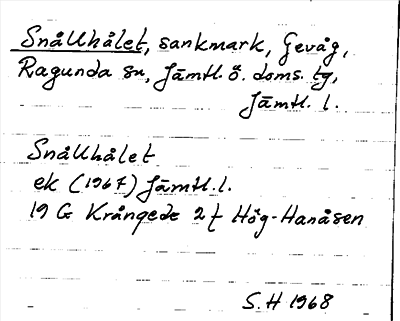 Snållhålet, sankmark, Gevåg,
Ragunda sn, Jämtl. ö. doms. tg,
Jämtl. l.
Snållhålet
ek (1967) Jämtl. l.
19 G Krångede 2 f Hög-Hanåsen
S.H 1968